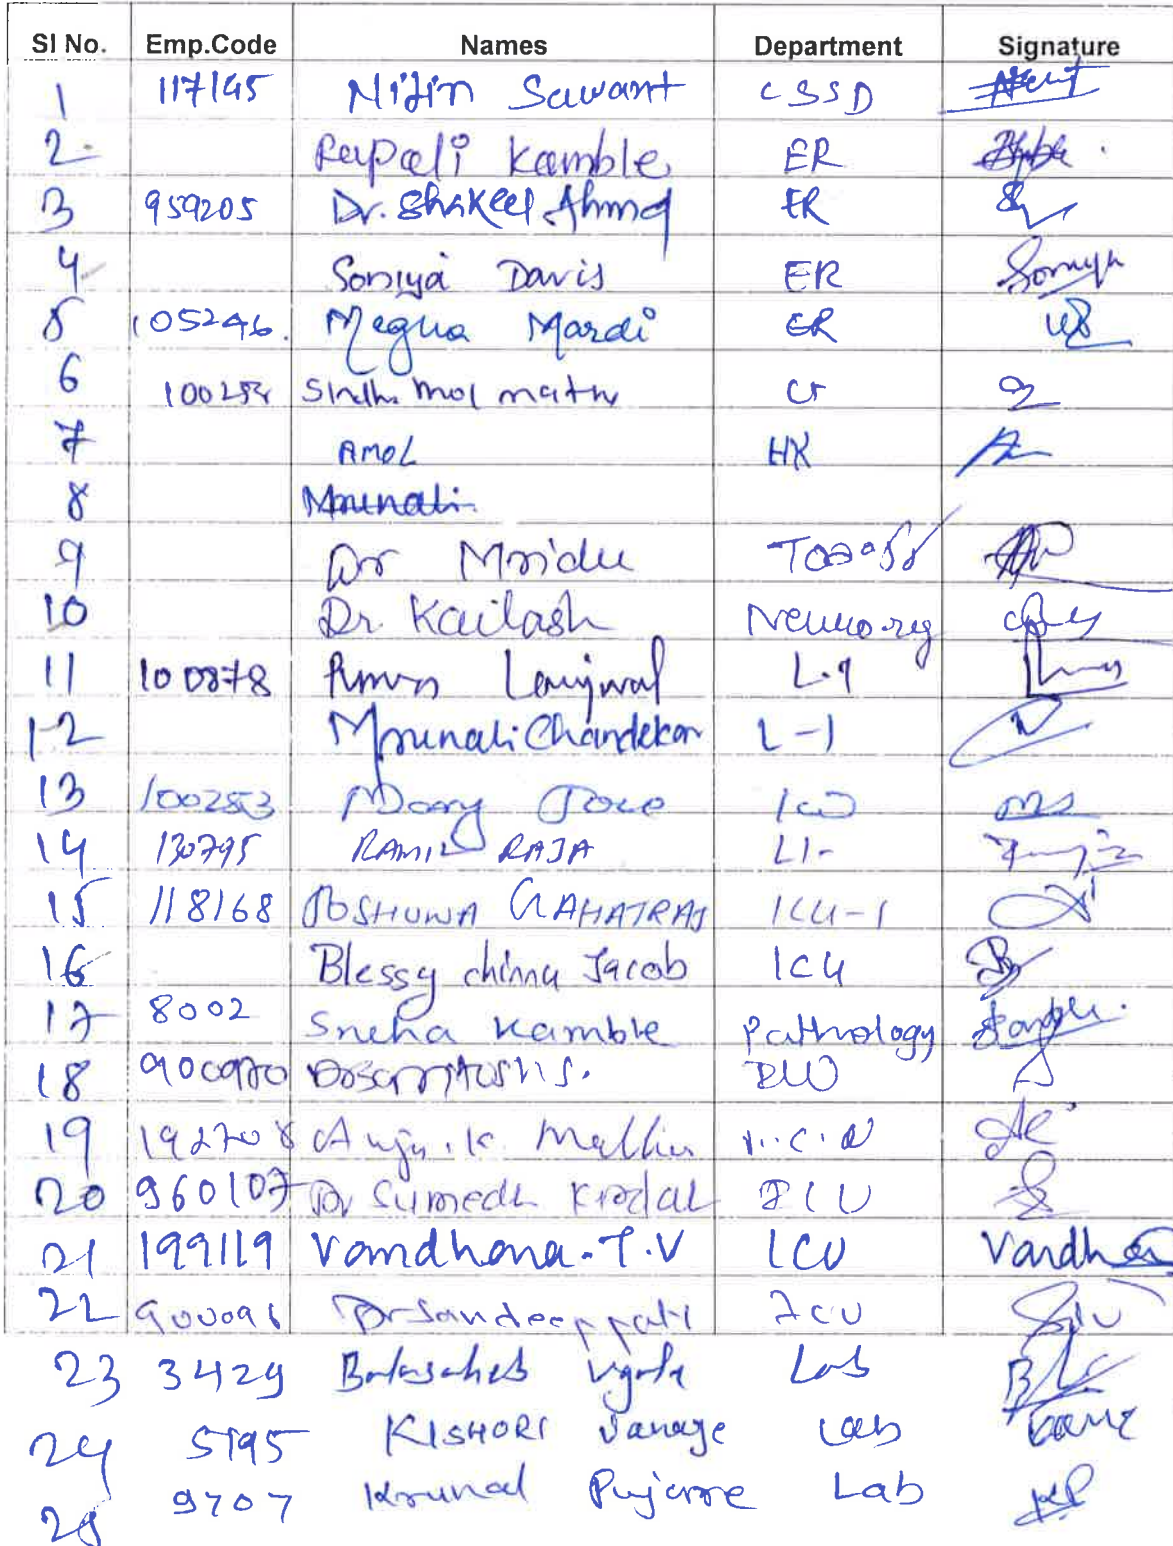 Sl No. Emp.Code Names Department Signature
1 117145 Nitin Sawant CSSD
2 Rupali Kamble ER
3 959205 Dr. Shakeel Ahmad ER
4 Soniya Davis ER Soniya
5 105246. Megha Mardi ER
6 100254 Sindhu mol
7 AMOL HK
8 Mrunali
9 Dr Mridu
10 Dr. Kailash Neuro.reg
11 100878 L-1
12 Mrunali Chandekar L-1
13 1002553 Mary Jose ICU
14 130795 RAMIZ RAJA L1-
15 118168 JOSHUWA GAHATRAJ ICU-1
16 Blessy chinnu Jacob ICU
17 8002 Sneha Kamble Pathology
18 900970
19 192708 Anju.K.
20 960107 Dr Sumedh ICU
21 199119 Vandhana.T.V ICU Vandhana
22 900096 Dr Sandeep patil ICU
23 3429 Balasaheb Lab
24 5195 KISHORI Vanage Lab
25 9707 Krunal Pujare Lab KP